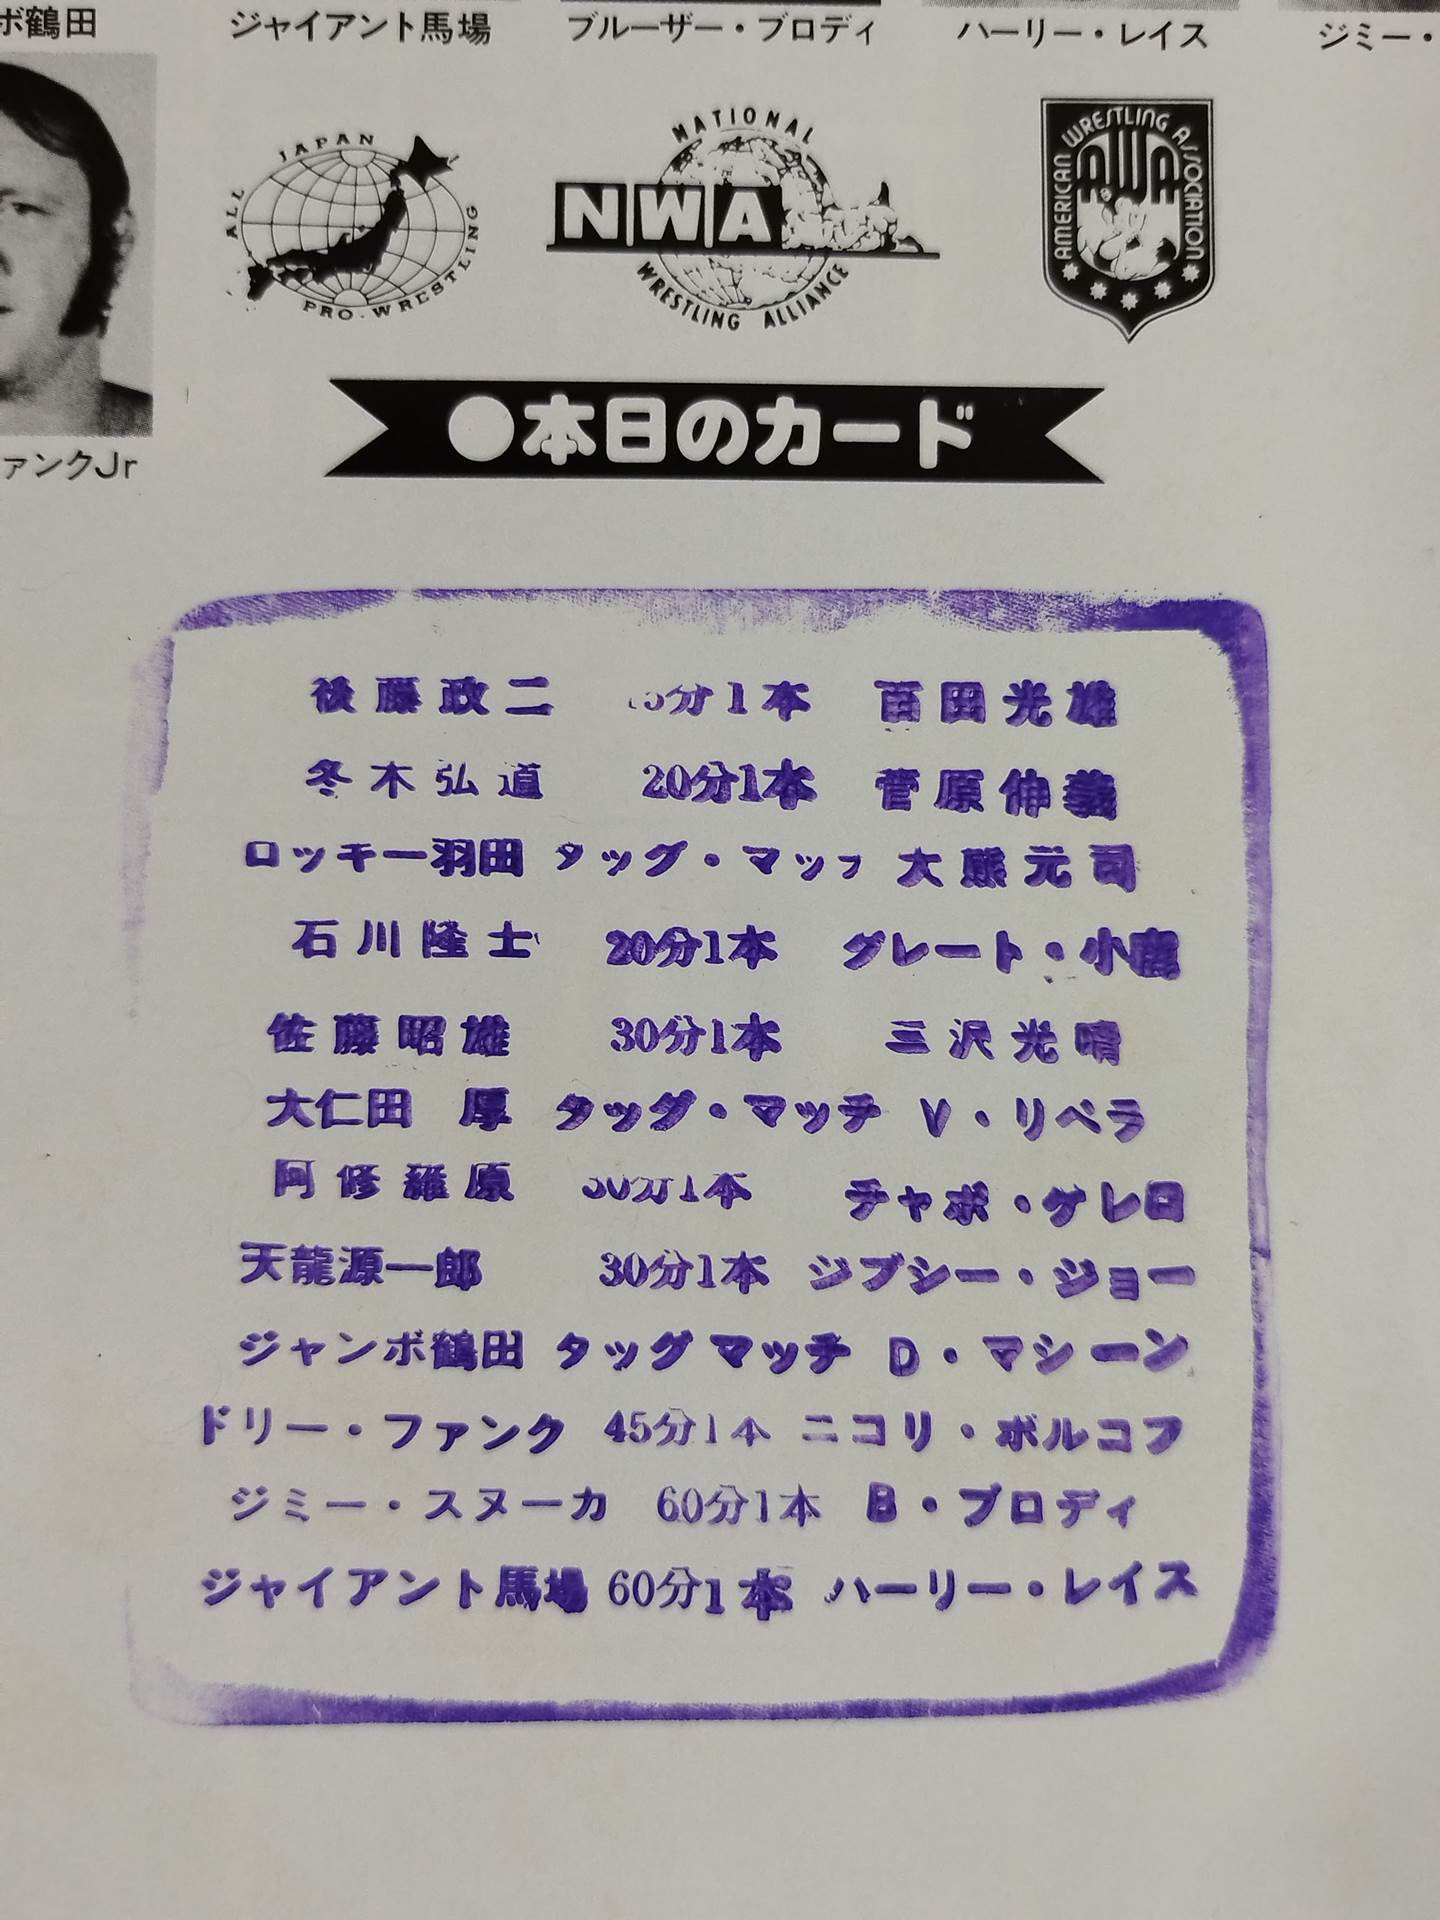 ボ鶴田 ジャイアント馬場 ブルーザー・ブロディ ハーリー・レイス ジミー・
ALL JAPAN PRO.WRESTLING
NATIONAL
NWA
WRESTLING ALLIANCE
AMERICAN WRESTLING ASSOCIATION
AWA
ァンクJr
●本日のカード
後藤政二 5分1本 百田光雄
冬木弘道 20分1本 菅原伸義
ロッキー羽田 タッグ・マッチ 大熊元司
石川隆士 20分1本 グレート・小鹿
佐藤昭雄 30分1本 三沢光晴
大仁田 厚 タッグ・マッチ V・リベラ
阿修羅原 30分1本 チャボ・ゲレロ
天龍源一郎 30分1本 ジプシー・ジョー
ジャンボ鶴田 タッグマッチ D・マシーン
ドリー・ファンク 45分1本 ニコリ・ボルコフ
ジミー・スヌーカ 60分1本 B・ブロディ
ジャイアント馬場 60分1本 ハーリー・レイス